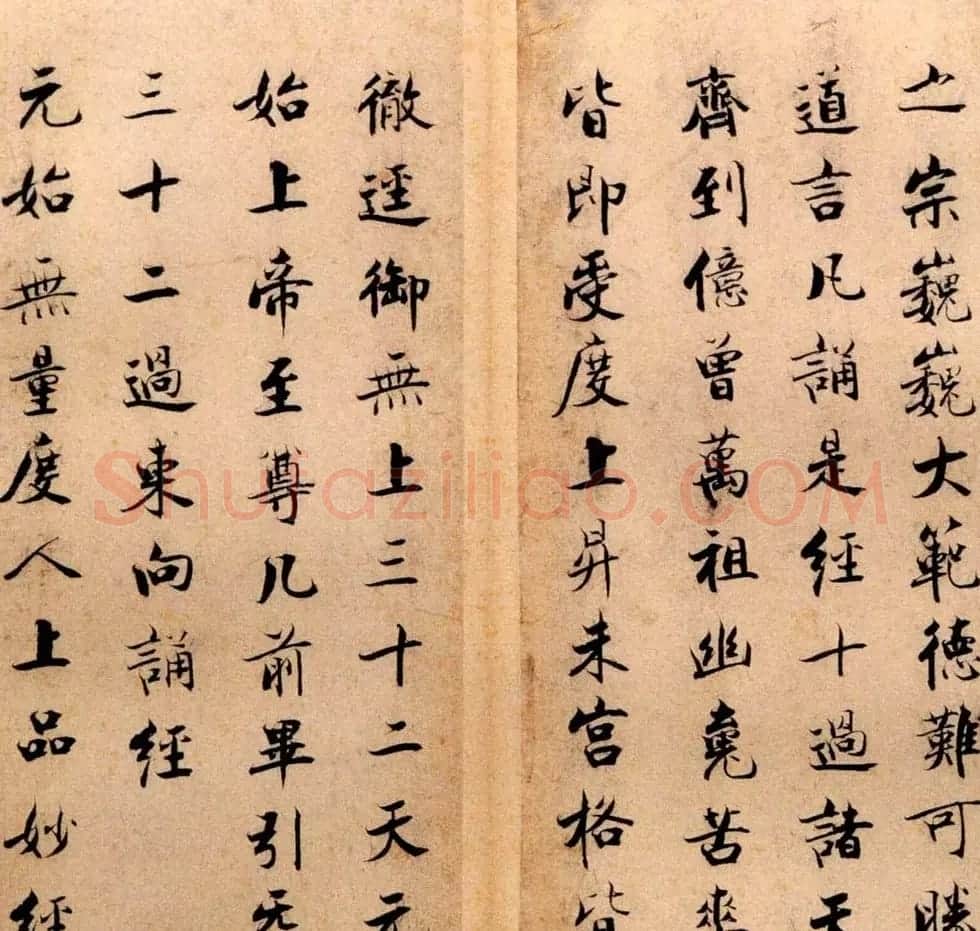 之宗巍巍大範德難可勝
道言凡誦是經十過諸天
齊到億曾萬祖幽䰟苦爽
皆即受度上昇朱宮格皆
徹逕御無上三十二天元
始上帝至尊几前畢引炁
三十二過東向誦經
元始無量度人上品妙經
Shufaziliao.COM